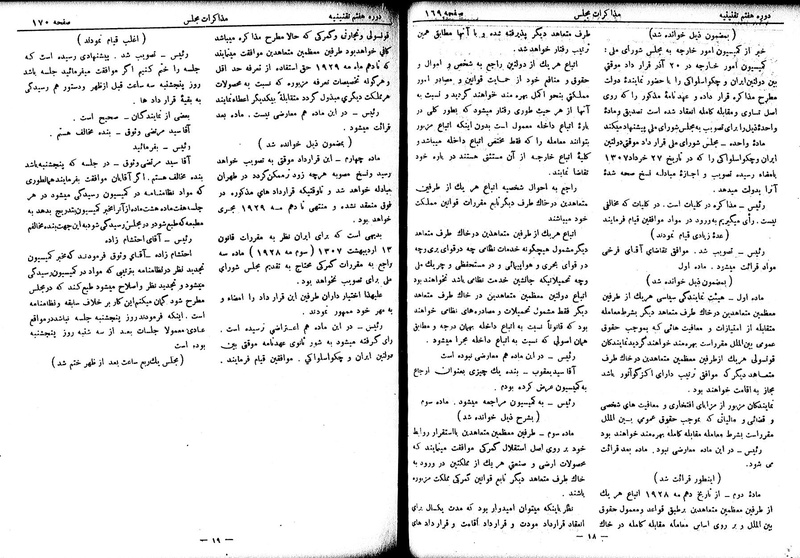 دوره هفتم تقنینیه
مذاکرات مجلس
صفحه ۱۶۹
(بمضمون ذیل خوانده شد)
خبر از کمیسیون امور خارجه به مجلس شورای ملی:
کمیسیون امور خارجه در ۲۰ آذر قرار داد موقتی
بین دولتین ایران و چکواسلواکی را با حضور نمایندهٔ دولت
مطرح مذاکره قرار داده و عهدنامهٔ مذکور را که روی
اصل تساوی و مقابله کامله انعقاد شده است تصدیق و مادهٔ
واحدهٔ ذیل را برای تصویب به مجلس شورای ملی پیشنهاد میکند
مادهٔ واحده - مجلس شورای ملی قرار داد موقتی دولتین
ایران و چکواسلواکی را که در تاریخ ۲۷ خرداد ۱۳۰۷
بامضاء رسیده تصویب و اجازهٔ مبادله نسخ صحه شدهٔ
آنرا بدولت میدهد.
رئیس - مذاکره در کلیات است. در کلیات که مخالفی
نیست. رأی میگیریم به ورود در مواد موافقین قیام فرمایند
(عدهٔ زیادی قیام نمودند)
رئیس - تصویب شد. موافق تقاضای آقای فرخی
مواد قرائت میشود. ماده اول
(بمضمون ذیل خوانده شد)
ماده اول - هیئت نمایندگی سیاسی هریک از طرفین
معظمین متعاهدین در خاک طرف متعاهد دیگر بشرط معامله
متقابله از امتیازات و معافیت هائی که بموجب حقوق
عمومی بین الملل مقرر است بهره مند خواهند گردید نمایندگان
قونسولی هریک از طرفین معظمین متعاهدین در خاک طرف
متعاهد دیگر که موافق ترتیب دارای اکزکواتور باشد
مجاز به اقامت خواهند بود.
نمایندگان مزبور از مزایای افتخاری و معافیت های شخصی
و قضائی و مالیاتی که بموجب حقوق عمومی بین الملل
مقرر است بشرط معامله متقابله کامله بهره مند خواهند بود
رئیس - در این ماده معارضی نبود. ماده بعد قرائت
می شود.
(اینطور قرائت شد)
مادهٔ دوم - از تاریخ دهم مه ۱۹۲۸ اتباع هر یک
از طرفین معظمین متعاهدین بر طبق قواعد و معمول حقوق
بین الملل و بر روی اساس معامله متقابله کامله در خاک
طرف متعاهد دیگر پذیرفته شده و با آنها مطابق همین
ترتیب رفتار خواهد شد.
اتباع هر یک از دولتین راجع به شخص و اموال و
حقوق و منافع خود از حمایت قوانین و مصادر امور
مملکتی بنحو اکمل بهره مند خواهند گردید و نسبت به
آنها از هر حیث طوری رفتار میشود که بطور کلی در
بارهٔ اتباع داخله معمول است بدون اینکه اتباع مزبور
بتوانند معامله را که فقط مختص اتباع داخله میباشد و
کلیهٔ اتباع خارجه از آن مستثنی هستند در باره خود
تقاضا نمایند.
راجع به احوال شخصیه اتباع هر یک از طرفین
متعاهدین در خاک طرف دیگر تابع مقررات قوانین مملکت
خود میباشند
اتباع هریک از طرفین متعاهدین در خاک طرف متعاهد
دیگر مشمول هیچگونه خدمات نظامی چه در قوای بری و چه
در قوای بحری و هوائی و در مستحفظی و چریک ملی
وچه تحمیلاتیکه جانشین خدمت نظامی باشد نخواهد بود.
اتباع دولتین معظمین متعاهدین در خاک طرف متعاهد
دیگر فقط مشمول تحمیلات و مصادره های نظامی خواهند
بود که قانوناً نسبت به اتباع داخله بهمان درجه و مطابق
همان اصولی که نسبت به اتباع داخله مجرا میشود.
رئیس - در این ماده هم معارضی نبوده است
آقا سید یعقوب - بنده یک چیزی بعنوان ارجاع
به کمیسیون عرض کرده بودم.
رئیس - به کمیسیون مراجعه میشود. ماده سوم
(بشرح ذیل خوانده شد)
ماده سوم - طرفین معظمین متعاهدین باستقرار روابط
خود بر روی اصل استقلال گمرکی موافقت مینمایند که
محصولات ارضی و صنعتی هر یک از مملکتین در ورود به
خاک طرف متعاهد دیگر تابع قوانین گمرکی مملکت مزبور
باشند.
نظر باینکه میتوان امیدوار بود که مدت یکسال برای
انعقاد قرارداد مودت و قرارداد اقامت و قرارداد های
- ۱۸ -
دوره هفتم تقنینیه
مذاکرات مجلس
صفحه ۱۷۰
قونسولی و تجارتی و گمرکی که حالا مطرح مذاکره میباشد
کافی خواهد بود طرفین معظمین متعاهدین موافقت مینمایند
که تا دهم ماه مه ۱۹۲۹ حق استفاده از تعرفه حد اقل
و هرگونه تخصیصات تعرفه مزبوره که نسبت به محصولات
هر مملکت دیگری مبذول گردد متقابلاً بیکدیگر اعطاء نمایند
رئیس - در این ماده هم معارضی نیست. ماده بعد
قرائت میشود.
(بمضمون ذیل خوانده شد)
ماده چهارم - این قرارداد موقتی به تصویب خواهد
رسید و نسخ مصوبه هرچه زودتر ممکن گردد در طهران
مبادله خواهد شد و تا وقتیکه قرارداد های مذکوره در
فوق منعقد نشده و منتهی تا دهم مه ۱۹۲۹ مجری
خواهد بود.
بدیهی است که برای ایران نظر به مقررات قانون
۱۳ اردیبهشت ۱۳۰۷ (سوم مه ۱۹۲۸) ماده سه
راجع به مقررات گمرکی محتاج به تقدیم مجلس شورای
ملی برای تصویب نخواهد بود.
علیهذا اختیار داران طرفین این قرار داد را امضاء و
به مهر خود ممهور نمودند.
رئیس - در این ماده هم اعتراضی نرسیده است.
رأی گرفته میشود به شور ثانوی عهدنامه موقتی بین
دولتین ایران و چکواسلواکی. موافقین قیام فرمایند.
(اغلب قیام نمودند)
رئیس - تصویب شد. پیشنهادی رسیده است که
جلسه را ختم کنیم اگر موافقت میفرمائید جلسه باشد
روز پنجشنبه سه ساعت قبل از ظهر و دستور هم رسیدگی
به بقیه قرار داد ها.
بعضی از نمایندگان - صحیح است.
آقا سید مرتضی وثوق - بنده مخالف هستم.
رئیس - بفرمائید
آقا سید مرتضی وثوق - در جلسه که پنجشنبه باشد
بنده مخالف هستم. اگر آقایان موافقت بفرمایند همانطوری
که مواد نظامنامه در کمیسیون رسیدگی میشود در هر
جلسه هفت ماده هشت ماده از آنرا مخبر کمیسیون بتدریج بدهد به
مطبعه که طبع شود در مجلس رسیدگی شود به این جهت بنده مخالفم
رئیس - آقای احتشام زاده
احتشام زاده - آقای وثوق فرمودند که مخبر کمیسیون
تجدید نظر در نظامنامه بترتیبی که مواد در کمیسیون رسیدگی
میشود و تجدید نظر و اصلاح میشود طبع کنند که در مجلس
مطرح شود گمان میکنم این کار بر خلاف سابقه و نظامنامه
است. اینکه فرمودند روز پنجشنبه جلسه نباشد در مواقع
عادی معمولا جلسات بعد از سه شنبه روز پنجشنبه
بوده است
(مجلس یکربع ساعت بعد از ظهر ختم شد)
- ۱۹ -